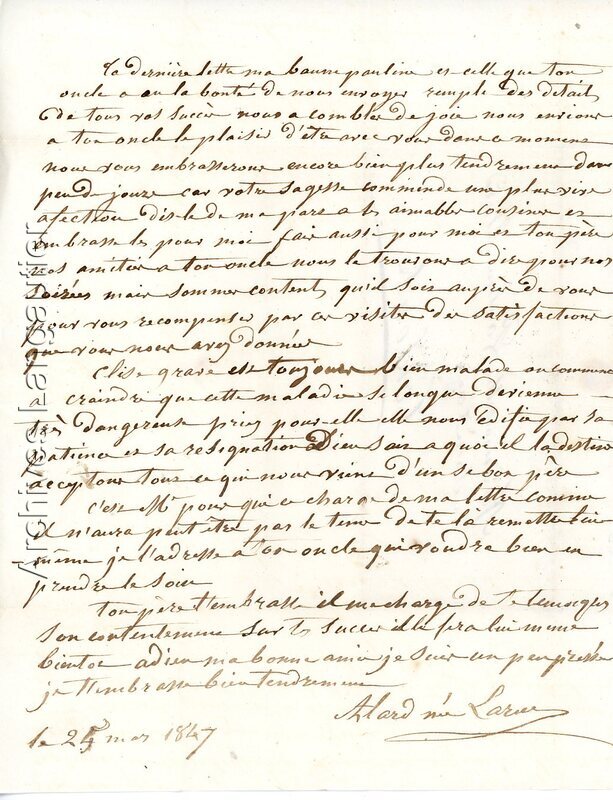 Ta dernière lettre ma bonne pauline et celle que ton
oncle a eu la bonté de nous envoyer remplie des détails
de tous vos succès nous a comblés de joie nous envions
a ton oncle le plaisir d'être avec vous dans ce moment
nous vous embrasserons encore bien plus tendrement dans
peu de jours car votre sagesse commende une plus vive
afection dis-le de ma part a tes aimables cousines et
embrasse les pour moi fair aussi pour moi et ton père
nos amitiés a ton oncle nous le trouvons a dire pour nos
soirées mais sommes contents quil soit auprès de vous
pour vous recompenser par ces visites des satisfactions
que vous nous avez données
Elise grave est toujours bien malade on commence
a craindre que cette maladie si longue devienne
très dangereuse priez pour elle elle nous édifie par sa
patience et sa resignation Dieu sait a quoi il la destine
acceptons tous ce qui nous vient d'un si bon père
c'est Mr qui ce charge de ma lettre comme
il n'aura peut être pas le tems de te la remettre lui
même je l'adresse a ton oncle qui voudra bien en
prendre le soin
ton père t'embrasse il me charge de te temoigner
son contentement sur tes succès il le fera lui même
bientot adieu ma bonne amie je suis un peu pressée
je t'embrasse bien tendrement
Alard née Larue
le 25 mar 1847
Archives Lapasüer